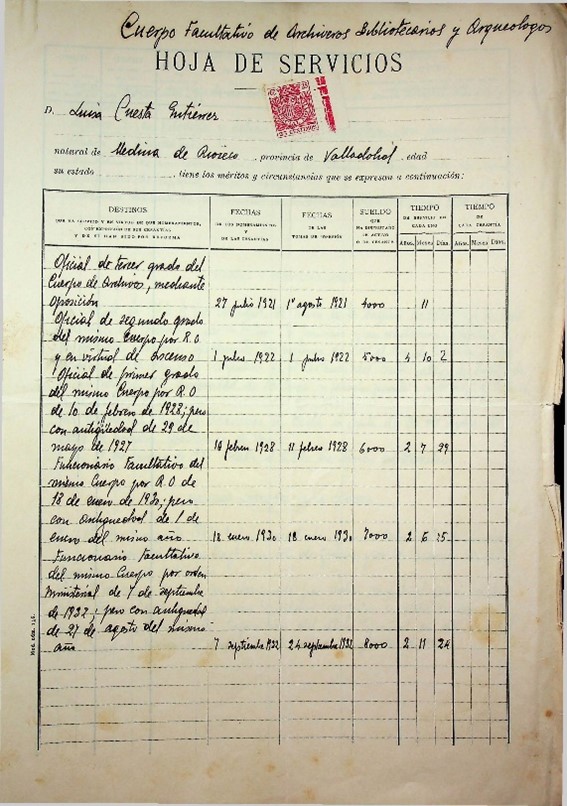 Cuerpo Facultativo de Archiveros Bibliotecarios y Arqueologos
HOJA DE SERVICIOS
D. Luisa Cuesta Gutiérrez
natural de Medina de Rioseco, provincia de Valladolid, edad
su estado , tiene los méritos y circunstancias que se expresan a continuación:
DESTINOS
Y DE EL HAN SIDO POR REFORMA
FECHAS
DE SUS NOMBRAMIENTOS
Y
DE LAS CESANTIAS
FECHAS
DE LAS
TOMAS DE POSESIÓN
SUELDO
QUE
HA DISFRUTADO
EN ACTIVO
O DE CESANTE
TIEMPO
DE SERVICIO EN
CADA UNO
Años. Meses Días.
TIEMPO
DE
CADA CESANTIA
Años. Meses Días.
Oficial de tercer grado del
Cuerpo de Archivos, mediante
oposición 27 julio 1921 1º agosto 1921 4000 11
Oficial de segundo grado
del mismo Cuerpo por R.O
y en virtud de ascenso 1 julio 1922 1 julio 1922 5000 4 10 2
Oficial de primer grado
del mismo Cuerpo por R.O
de 10 de febrero de 1928; pero
con antigüedad de 29 de
mayo de 1927 10 febrero 1928 11 febrero 1928 6000 2 7 29
Funcionario Facultativo del
mismo Cuerpo por R.O de
18 de enero de 1930; pero
con antiguedad de 1 de
enero del mismo año 18 enero 1930 18 enero 1930 7000 2 6 25
Funcionario Facultativo
del mismo Cuerpo por orden
Ministerial de 7 de septiembre
de 1932; pero con antiguedad
de 27 de agosto del mismo
año 7 septiembre 1932 24 septiembre 1932 8000 2 11 24